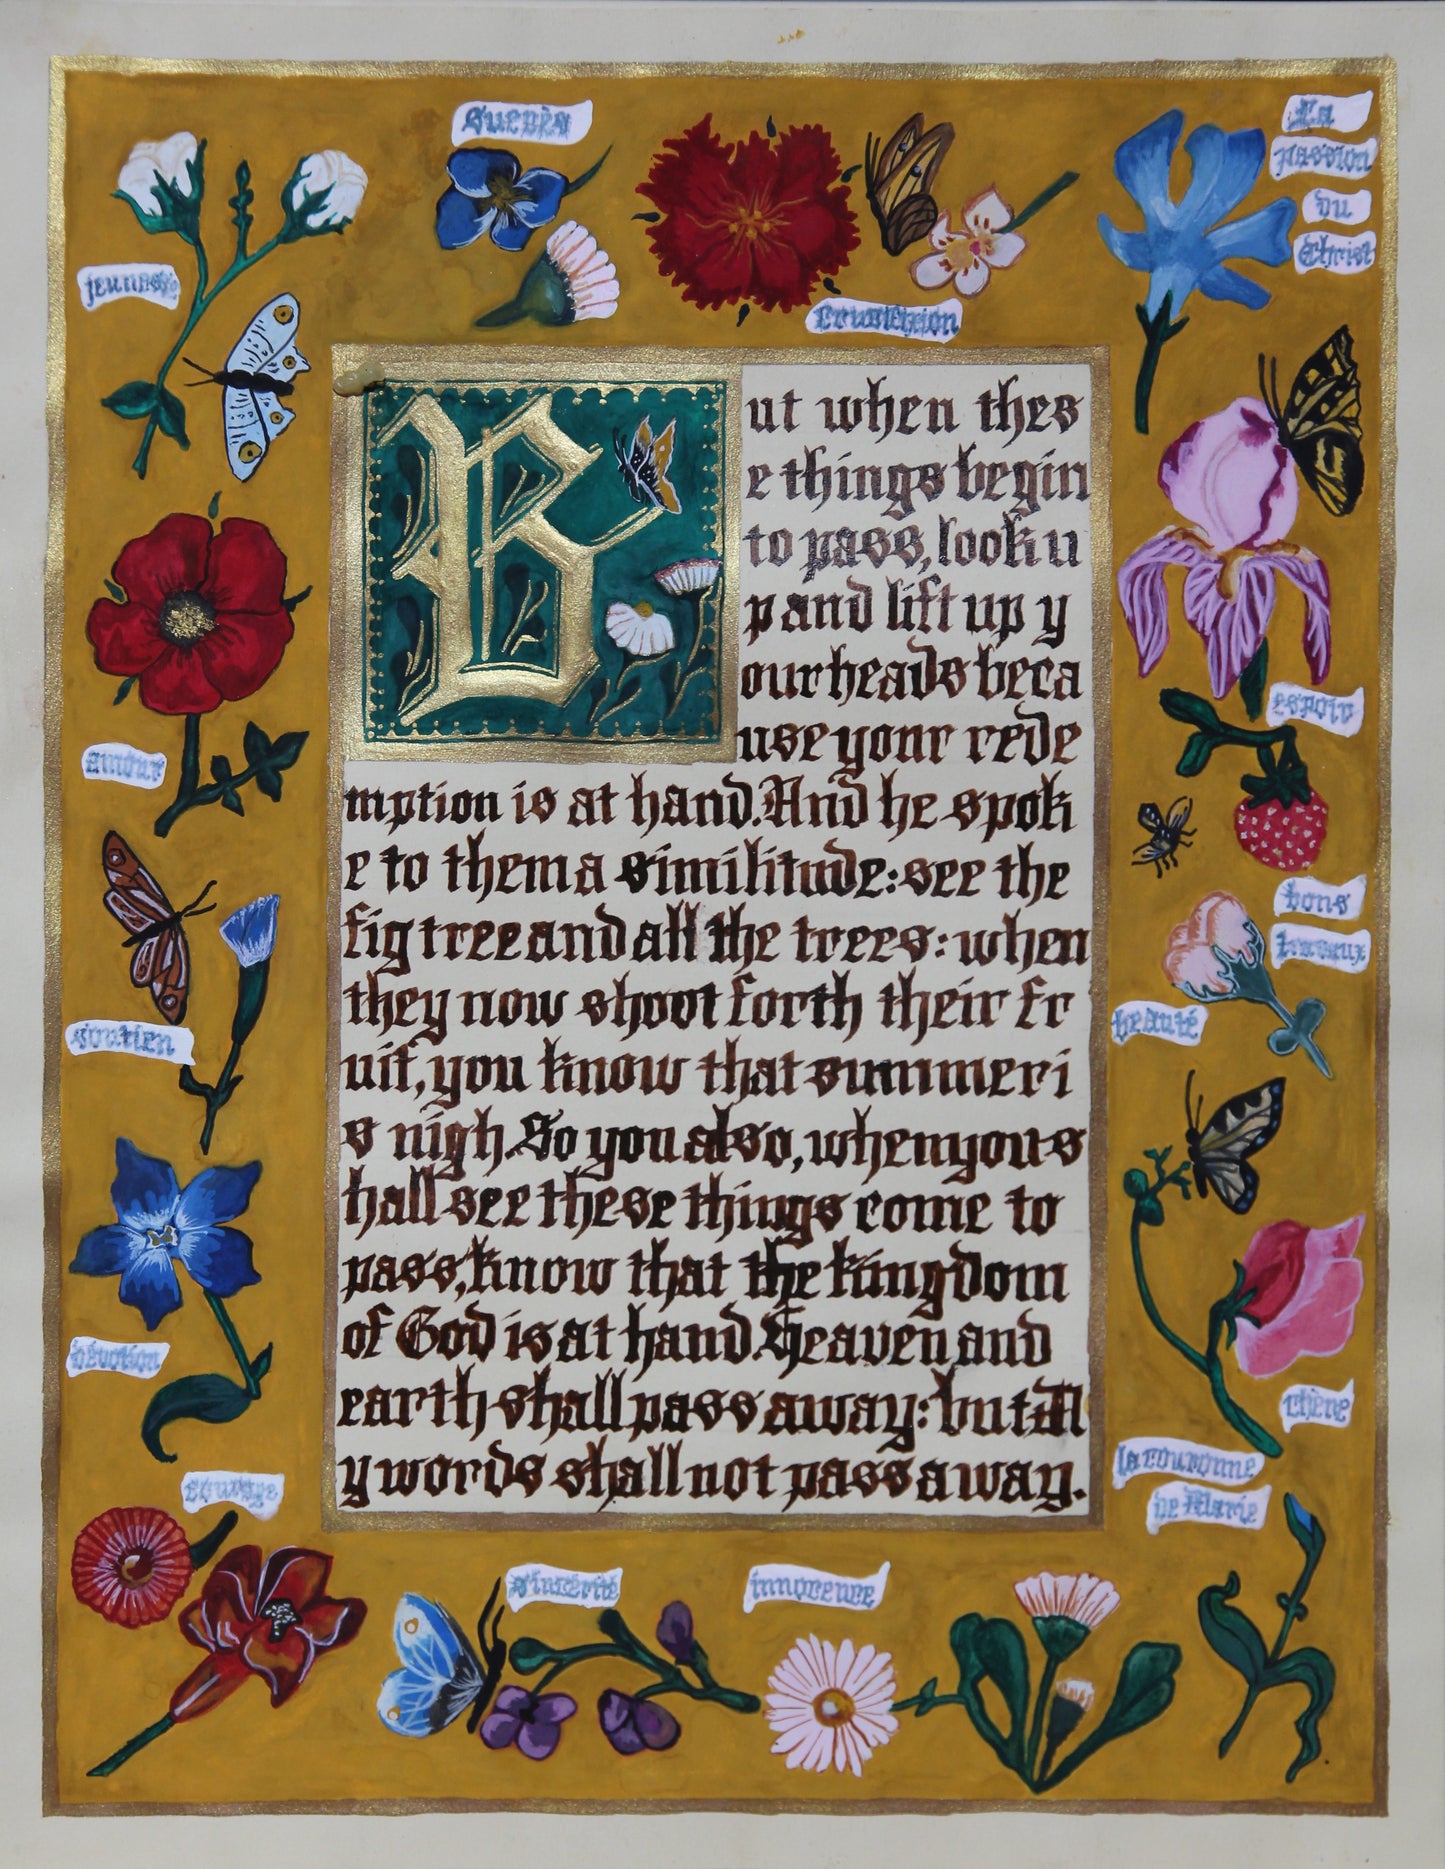 Succès
La
passion
du
Christ
jeunesse
But when thes
e things begin
to pass, look u
p and lift up y
our heads beca
use your rede
mption is at hand. And he spok
e to them a similitude: see the
fig tree and all the trees: when
they now shoot forth their fr
uit, you know that summer i
s nigh. So you also, when you s
hall see these things come to
pass, know that the kingdom
of God is at hand. Heaven and
earth shall pass away: but M
y words shall not pass away.
amour
soutien
dévotion
courage
espoir
bons
travaux
beauté
la couronne
de Marie
sincérité
innocence